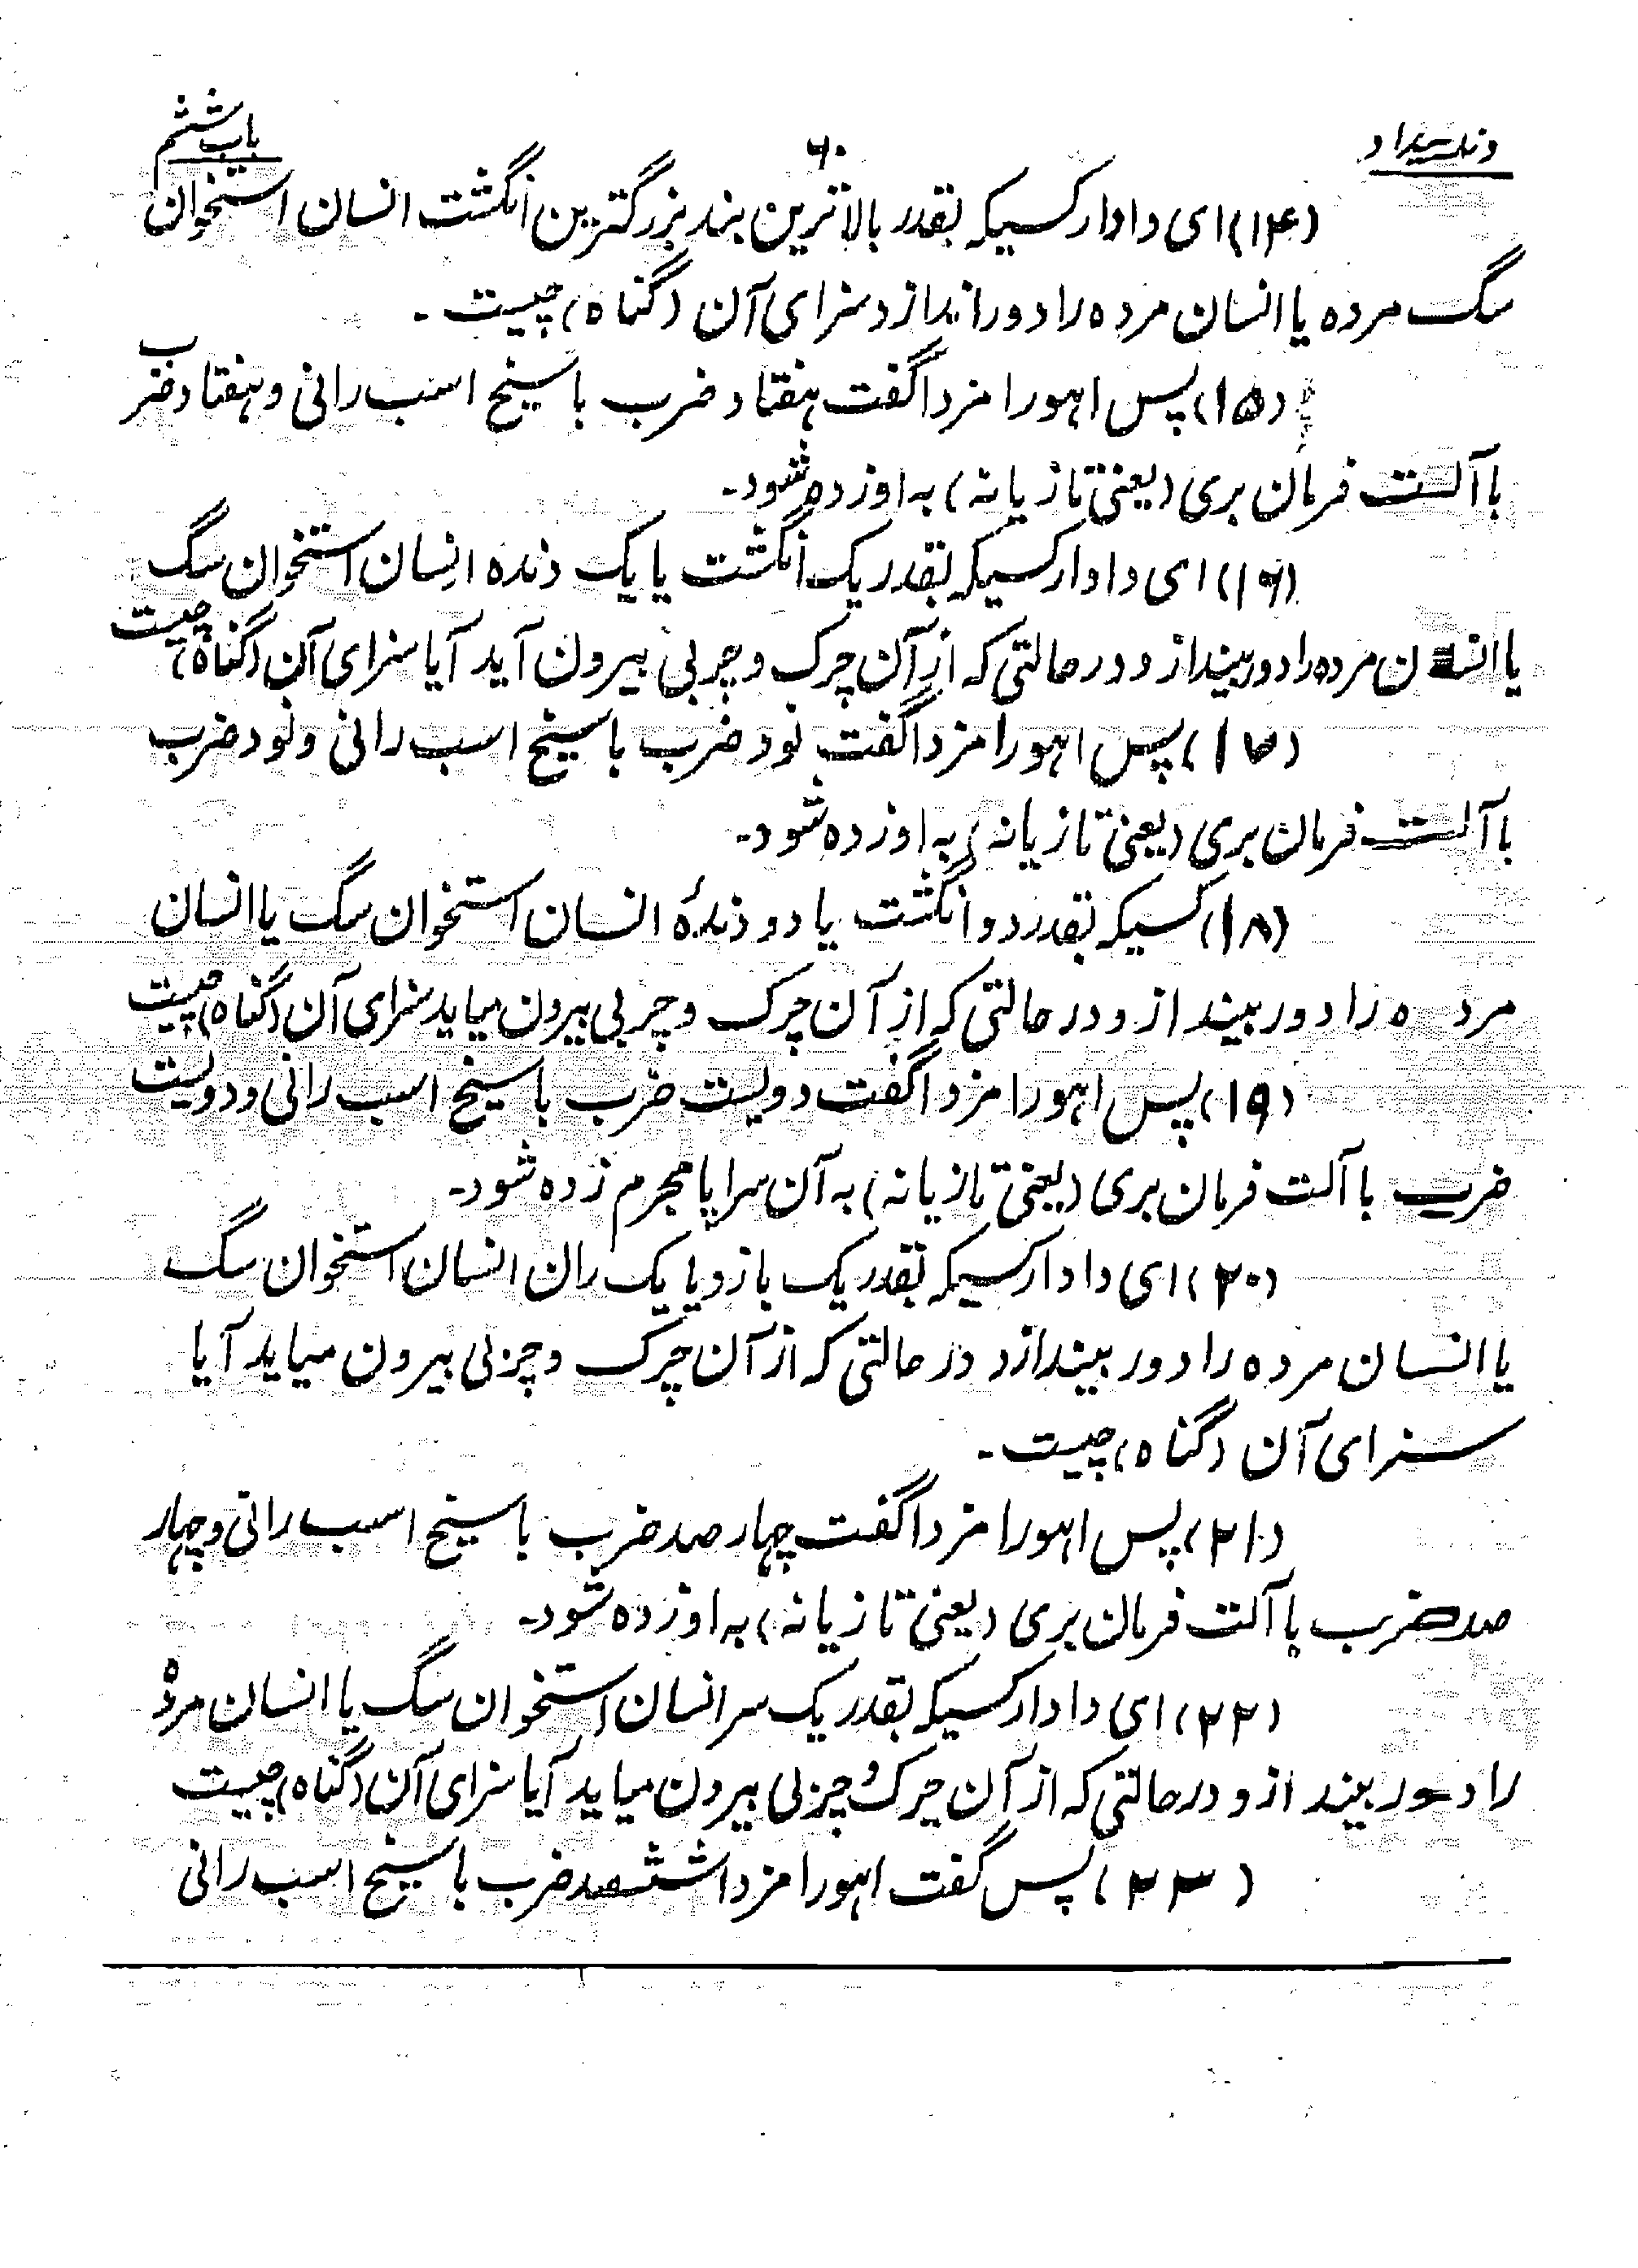 وندیداد
۶۰
باب ششم
(۱۴) ای دادار کسیکه بقدر بالاترین بند بزرگترین انگشت انسان استخوان
سگ مرده یا انسان مرده را دور اندازد سزای آن (گناه) چیست -
(۱۵) پس اهورا مزدا گفت هفتاد ضرب با سیخ اسب رانی و هفتاد ضرب
با آلت فرمان بری (یعنی تازیانه) به او زده شود -
(۱۶) ای دادار کسیکه بقدر یک انگشت یا یک دنده انسان استخوان سگ
یا انسان مرده را دور بیندازد در حالتی که از آن چرک و چربی بیرون آید آیا سزای آن (گناه) چیست
(۱۷) پس اهورا مزدا گفت نود ضرب با سیخ اسب رانی و نود ضرب
با آلت فرمان بری (یعنی تازیانه) به او زده شود -
(۱۸) کسیکه بقدر دو انگشت یا دو دندهٔ انسان استخوان سگ یا انسان
مرده را دور بیندازد در حالتی که از آن چرک و چربی بیرون میاید سزای آن (گناه) چیست
(۱۹) پس اهورا مزدا گفت دویست ضرب با سیخ اسب رانی و دویست
ضرب با آلت فرمان بری (یعنی تازیانه) به آن سراپا مجرم زده شود -
(۲۰) ای دادار کسیکه بقدر یک بازو یا یک ران انسان استخوان سگ
یا انسان مرده را دور بیندازد در حالتی که از آن چرک و چربی بیرون میاید آیا
سزای آن (گناه) چیست -
(۲۱) پس اهورا مزدا گفت چهار صد ضرب با سیخ اسب رانی و چهار
صد ضرب با آلت فرمان بری (یعنی تازیانه) به او زده شود -
(۲۲) ای دادار کسیکه بقدر یک سر انسان استخوان سگ یا انسان مرده
را دور بیندازد در حالتی که از آن چرک و چربی بیرون میاید آیا سزای آن (گناه) چیست
(۲۳) پس گفت اهورا مزدا ششصد ضرب با سیخ اسب رانی